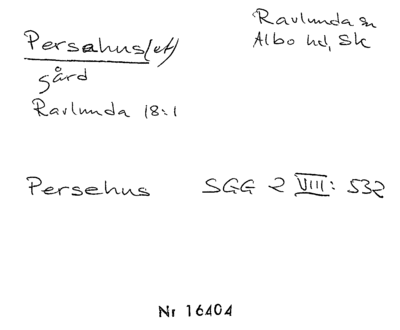 Persahus(et)
Ravlunda sn
Albo hd, Sk
gård
Ravlunda 18:1
Persehus SGG 2 VIII: 532
Nr 16404